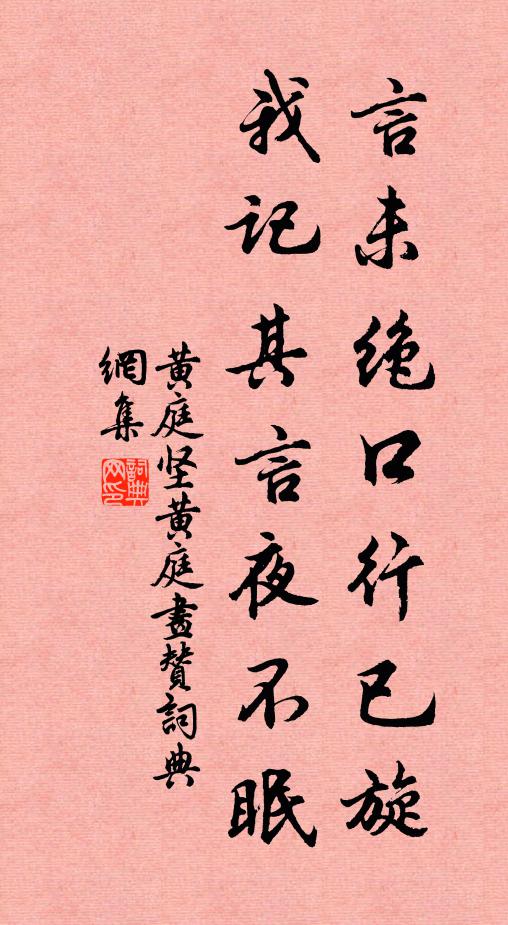 言未绝口行已旋
我记其言夜不眠
黄庭坚黄庭畫赞詞典
網集
詞典网印